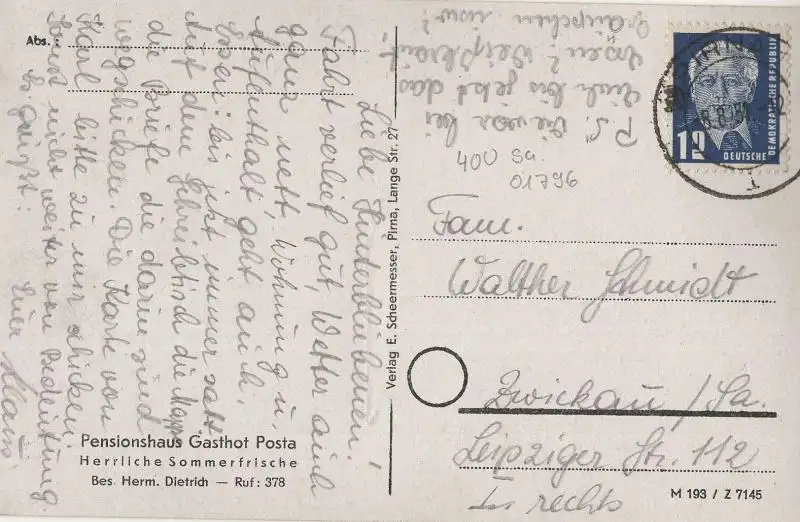 Abs.:
Liebe Hinterbliebenen!
Fahrt verlief gut Wetter auch
ganz nett. Wohnung u.
Aufenthalt geht auch.
Essen: bis jetzt immer satt
Auf dem Schreibtisch die Mappe
die Briefe die darin sind
wegschicken. Die Karte von
Karl bitte zu mir schicken.
Sonst nicht weiter von Bedeutung.
Es grüßt:
Euer Klaus
P.S. Wie war bei
Euch bis jetzt das
Essen?
Pensionshaus Gasthof Posta
Herrliche Sommerfrische
Bes. Herm. Dietrich — Ruf: 378
Verlag E. Scheermesser, Pirna, Lange Str. 27
400 Sa.
01796
PIRNA
12
DEUTSCHE
DEMOKRATISCHE REPUBLIK
Fam.
Walther Schmidt
Zwickau/Sa.
Leipziger Str. 112
I. rechts
M 193 / Z 7145